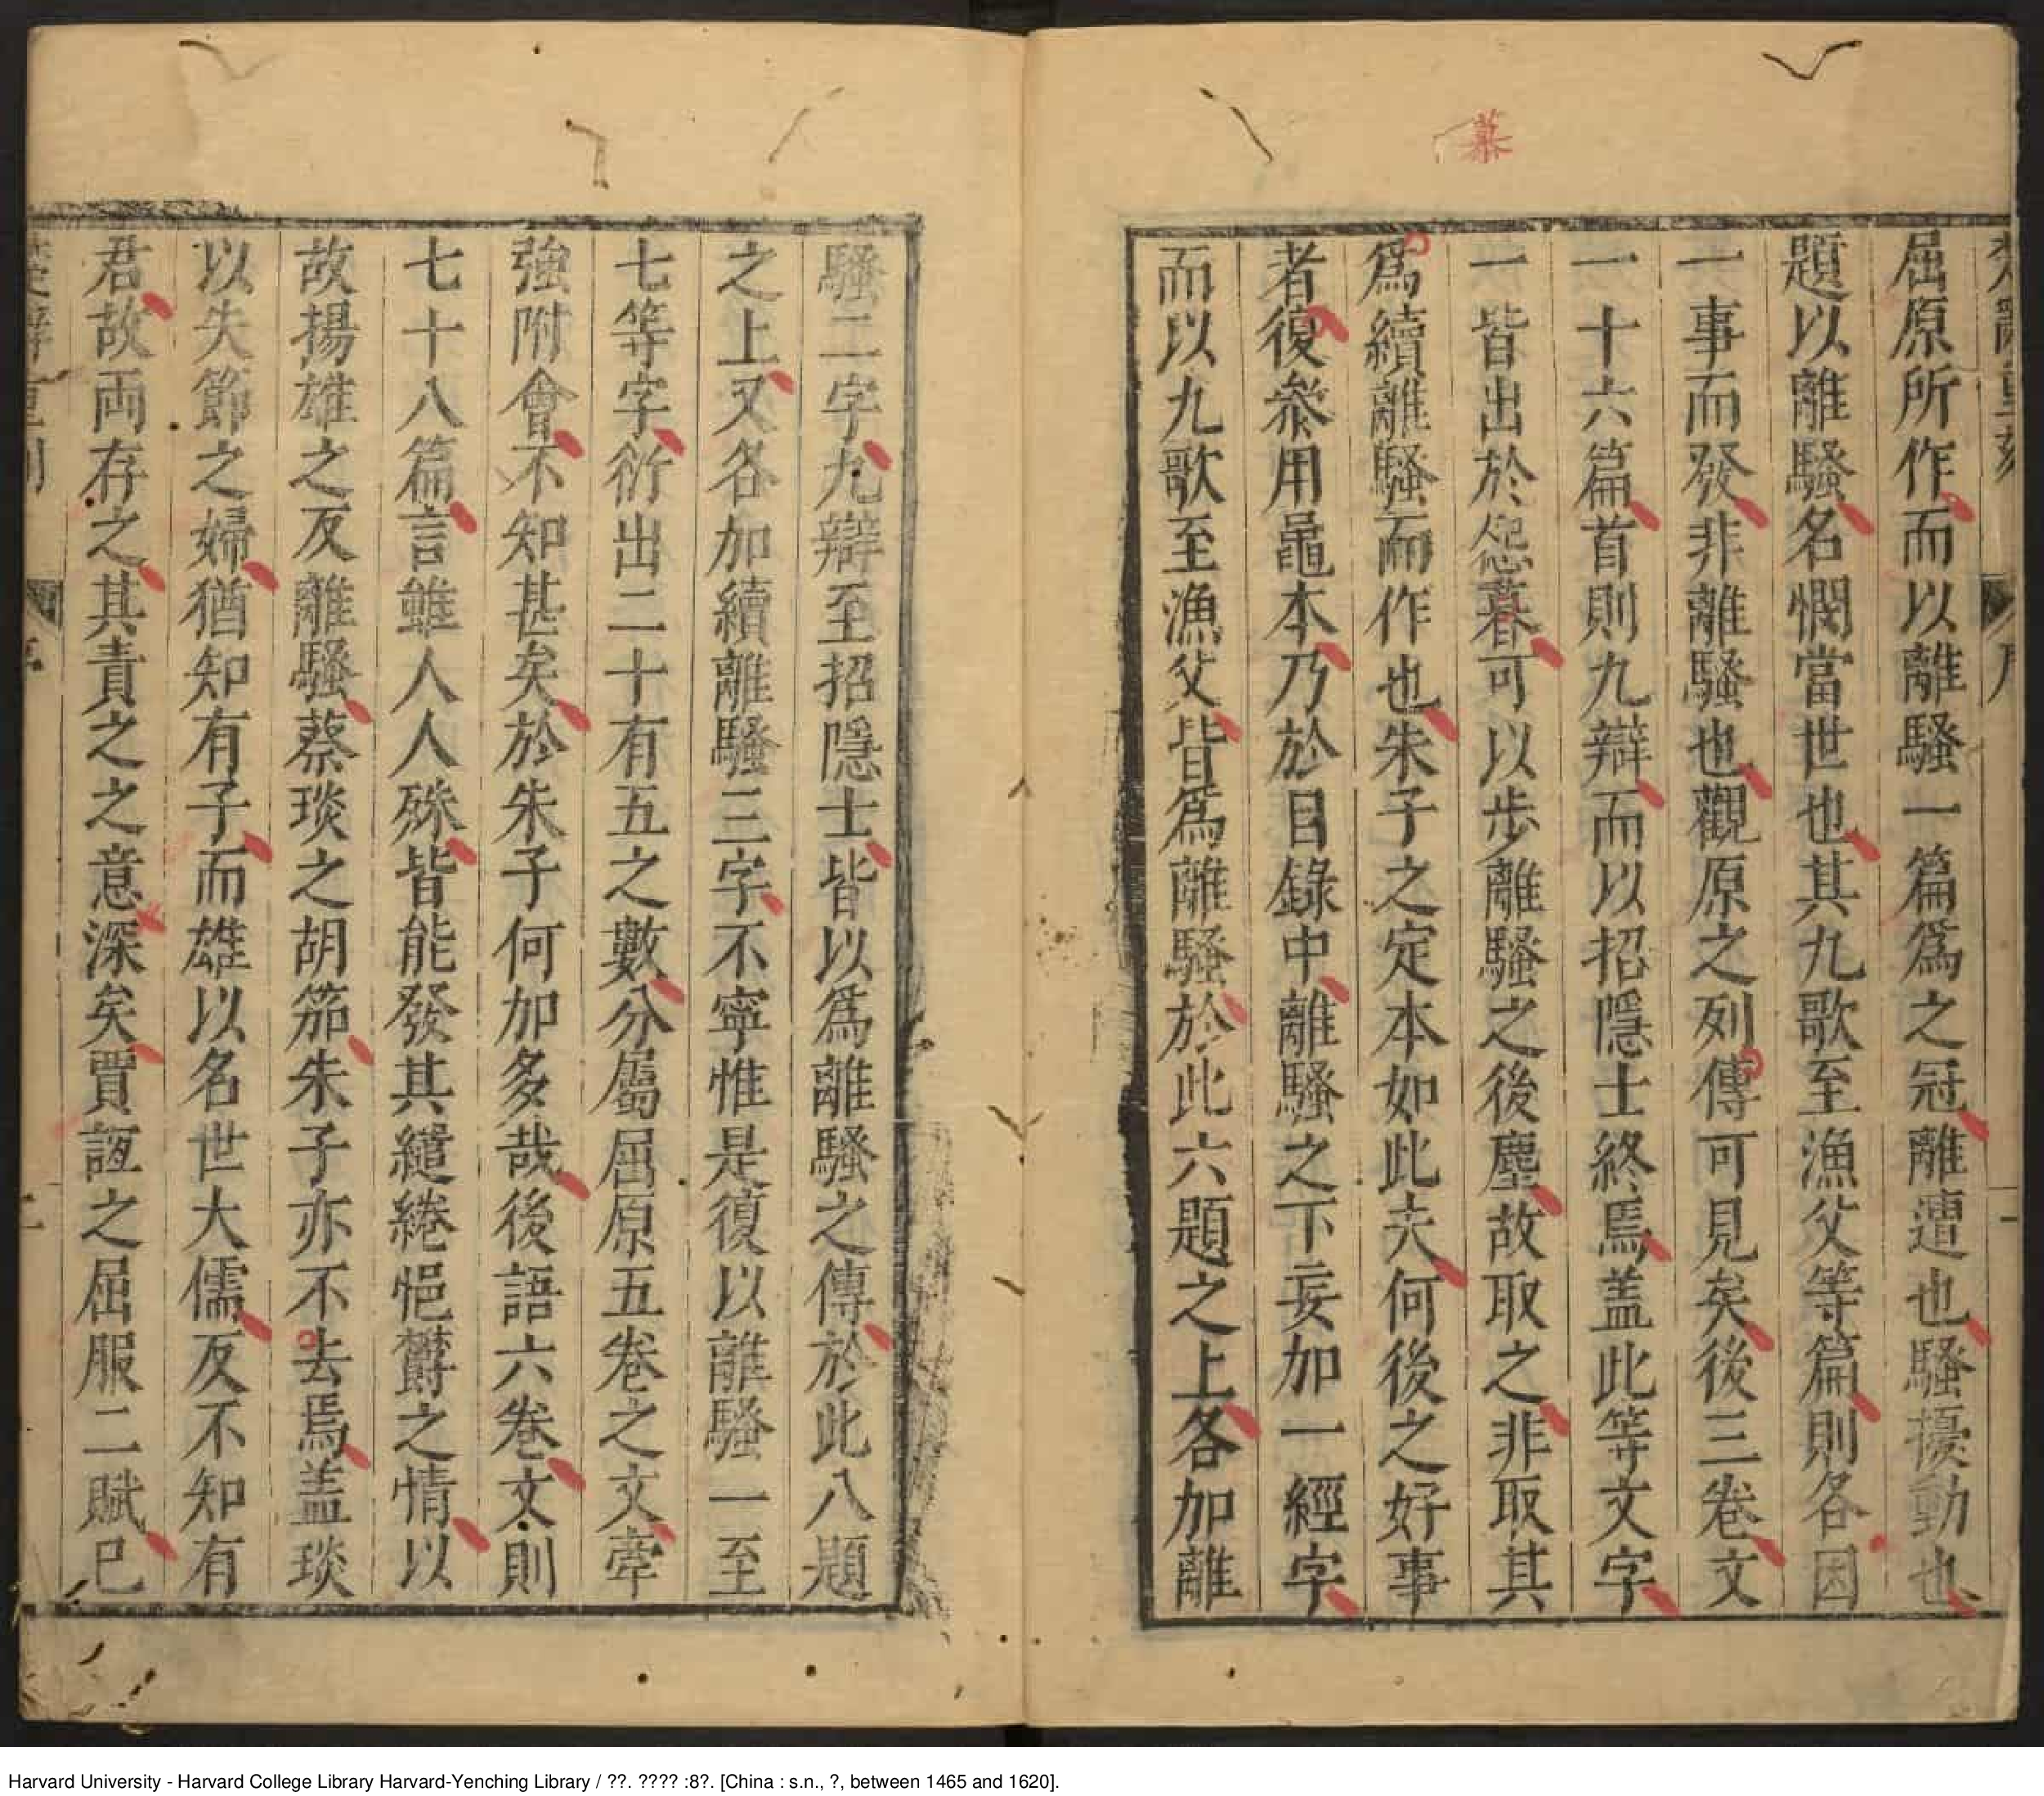 慕
屈原所作而以離騷一篇爲之冠離遭也騷擾動也
題以離騷名憫當世也其九歌至漁父等篇則各因
一事而發非離騷也觀原之列傳可見矣後三卷文
一十六篇首則九辯而以招隱士終焉盖此等文字
一皆出於怨暮可以步離騷之後塵故取之非取其
爲續離騷而作也朱子之定本如此夫何後之好事
者復叅用鼂本乃於目錄中離騷之下妄加一經字
而以九歌至漁父皆爲離騷於此六題之上各加離
騷二字九辯至招隱士皆以爲離騷之傳於此八題
之上又各加續離騷三字不寧惟是復以離騷一至
七等字衍出二十有五之數分屬屈原五卷之文牽
強附會不知甚矣於朱子何加多哉後語六卷文則
七十八篇言雖人人殊皆能發其繾綣悒欝之情以
故揚雄之反離騷蔡琰之胡笳朱子亦不去焉盖琰
以失節之婦猶知有子而雄以名世大儒反不知有
君故両存之其責之之意深矣賈誼之屈服二賦已
Harvard University - Harvard College Library Harvard-Yenching Library / ??. ???? :8?. [China : s.n., ?, between 1465 and 1620].